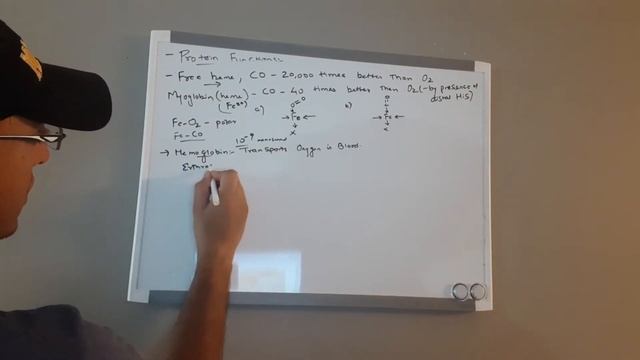 - Protein Functions
- Free heme, CO - 20,000 times better than O2
Myoglobin (heme) - CO - 40 times better than O2 (- by presence of distal His)
(Fe2+) a) b)
Fe-O2 - polar
Fe-CO
O O
Fe
X
O
C
Fe
10-9
→ Hemoglobin:- Transports Oxygen in Blood.
Erthro